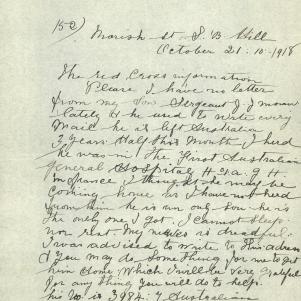 152)
Marish st S. B Hill
October 21. 10. 1918
The red Cross information
Please I have no letter
from my Son Sergeant J. J
lately & he used to write every
Mail he as left Australia
3 years Half this Month I herd
he was in the First Australian
general Hospital
in france I thought he may be
coming home as I have not herd
from him he is my only son he is
the only one I got. I cannot sleep
nor rest. My nerves is dreadful.
I was advised to write to this adress
& you may do Something for me to get
him home. Which I will be very grateful
for any thing you will do to help.
his No is 3984. Australian